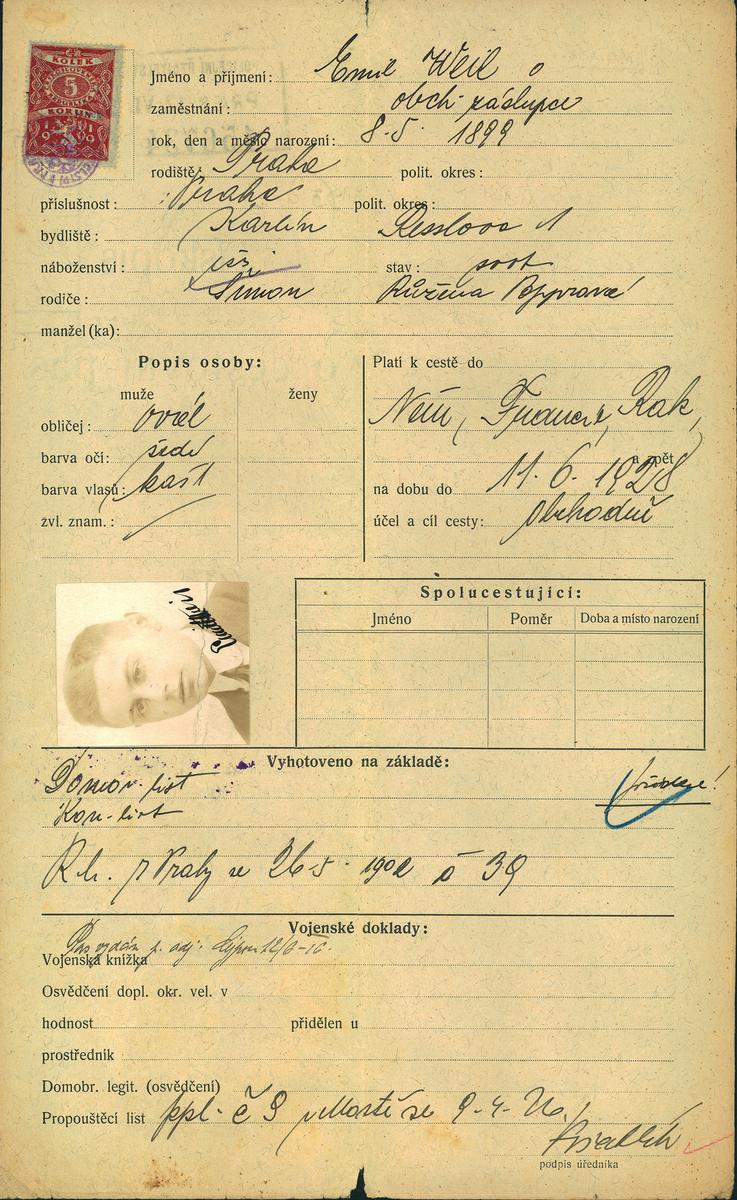 KOLEK
5
KORUN
1919
Jméno a příjmení: Emil Weil
zaměstnání: obch. zástupce
rok, den a měsíc narození: 8.5. 1899
rodiště: Praha polit. okres:
příslušnost: Praha polit. okres:
bydliště: Karlín Resslova 1
náboženství: isr. stav: svob.
rodiče: Šimon Růžena
manžel(ka):
Popis osoby:
muže ženy
obličej: ovál
barva očí: šedé
barva vlasů: kašt
zvl. znam.: /
Platí k cestě do
Něm, Francie, Rak,
a zpět
na dobu do 11.6.1928
účel a cíl cesty: obchodně
Spolucestující:
Jméno Poměr Doba a místo narození
Vyhotoveno na základě:
Domov. list
list
R. h. z Prahy ze 26.5. č 39
Vojenské doklady:
Pas vydán
Vojenská knížka
Osvědčení dopl. okr. vel. v
hodnost přidělen u
prostředník
Domobr. legit. (osvědčení)
Propouštěcí list ppl. č 9 ze 9.4.
podpis úředníka